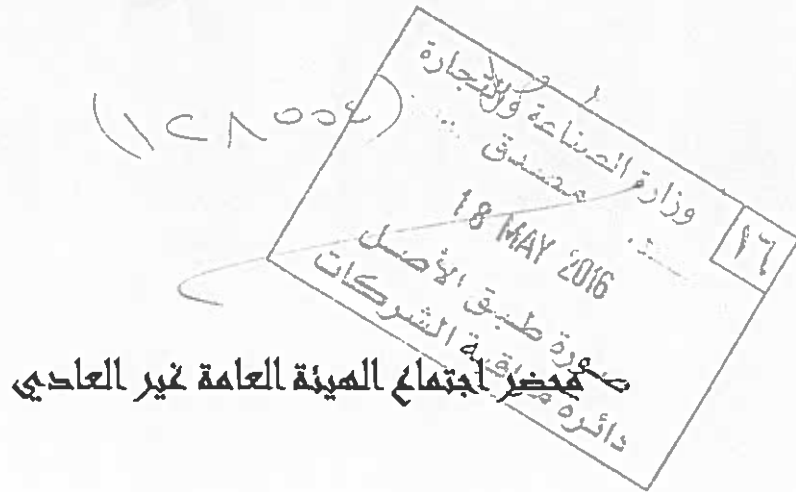 (١٢٨٥٥٤)
وزارة الصناعة والتجارة
مصدق
١٦
18 MAY 2016
صورة طبق الأصل
دائرة مراقبة الشركات
محضر اجتماع الهيئة العامة غير العادي